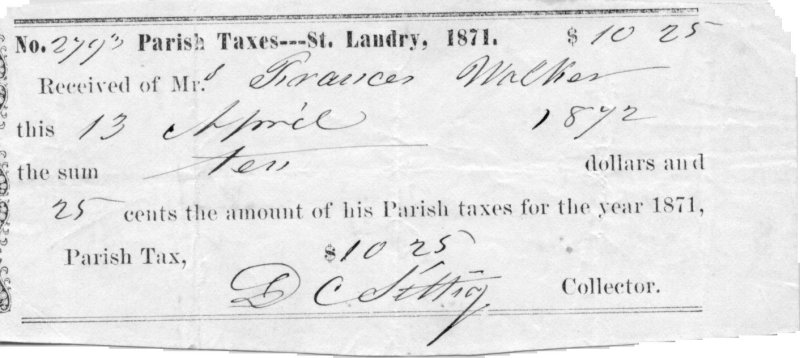 No. 2793 Parish Taxes---St. Landry, 1871. $ 10 25
Received of Mrs Frances Walker
this 13 April 1872
the sum ten dollars and
25 cents the amount of his Parish taxes for the year 1871,
Parish Tax, $ 10 25
D C Sittig Collector.